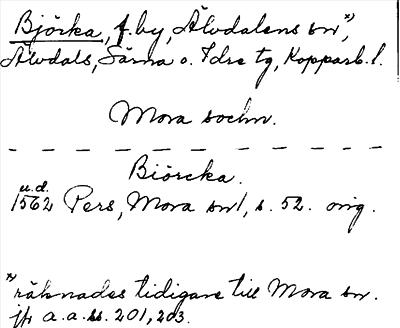 Björka, f. by, Älvdalens sn*),
Älvdals, Särna o. Idre tg, Kopparb. l.
Mora sochn.
Biörcka.
u.d.
1562 Pers, Mora sn1, s. 52. orig.
*) räknades tidigare till Mora sn.
jfr a.a. ss. 201, 203.